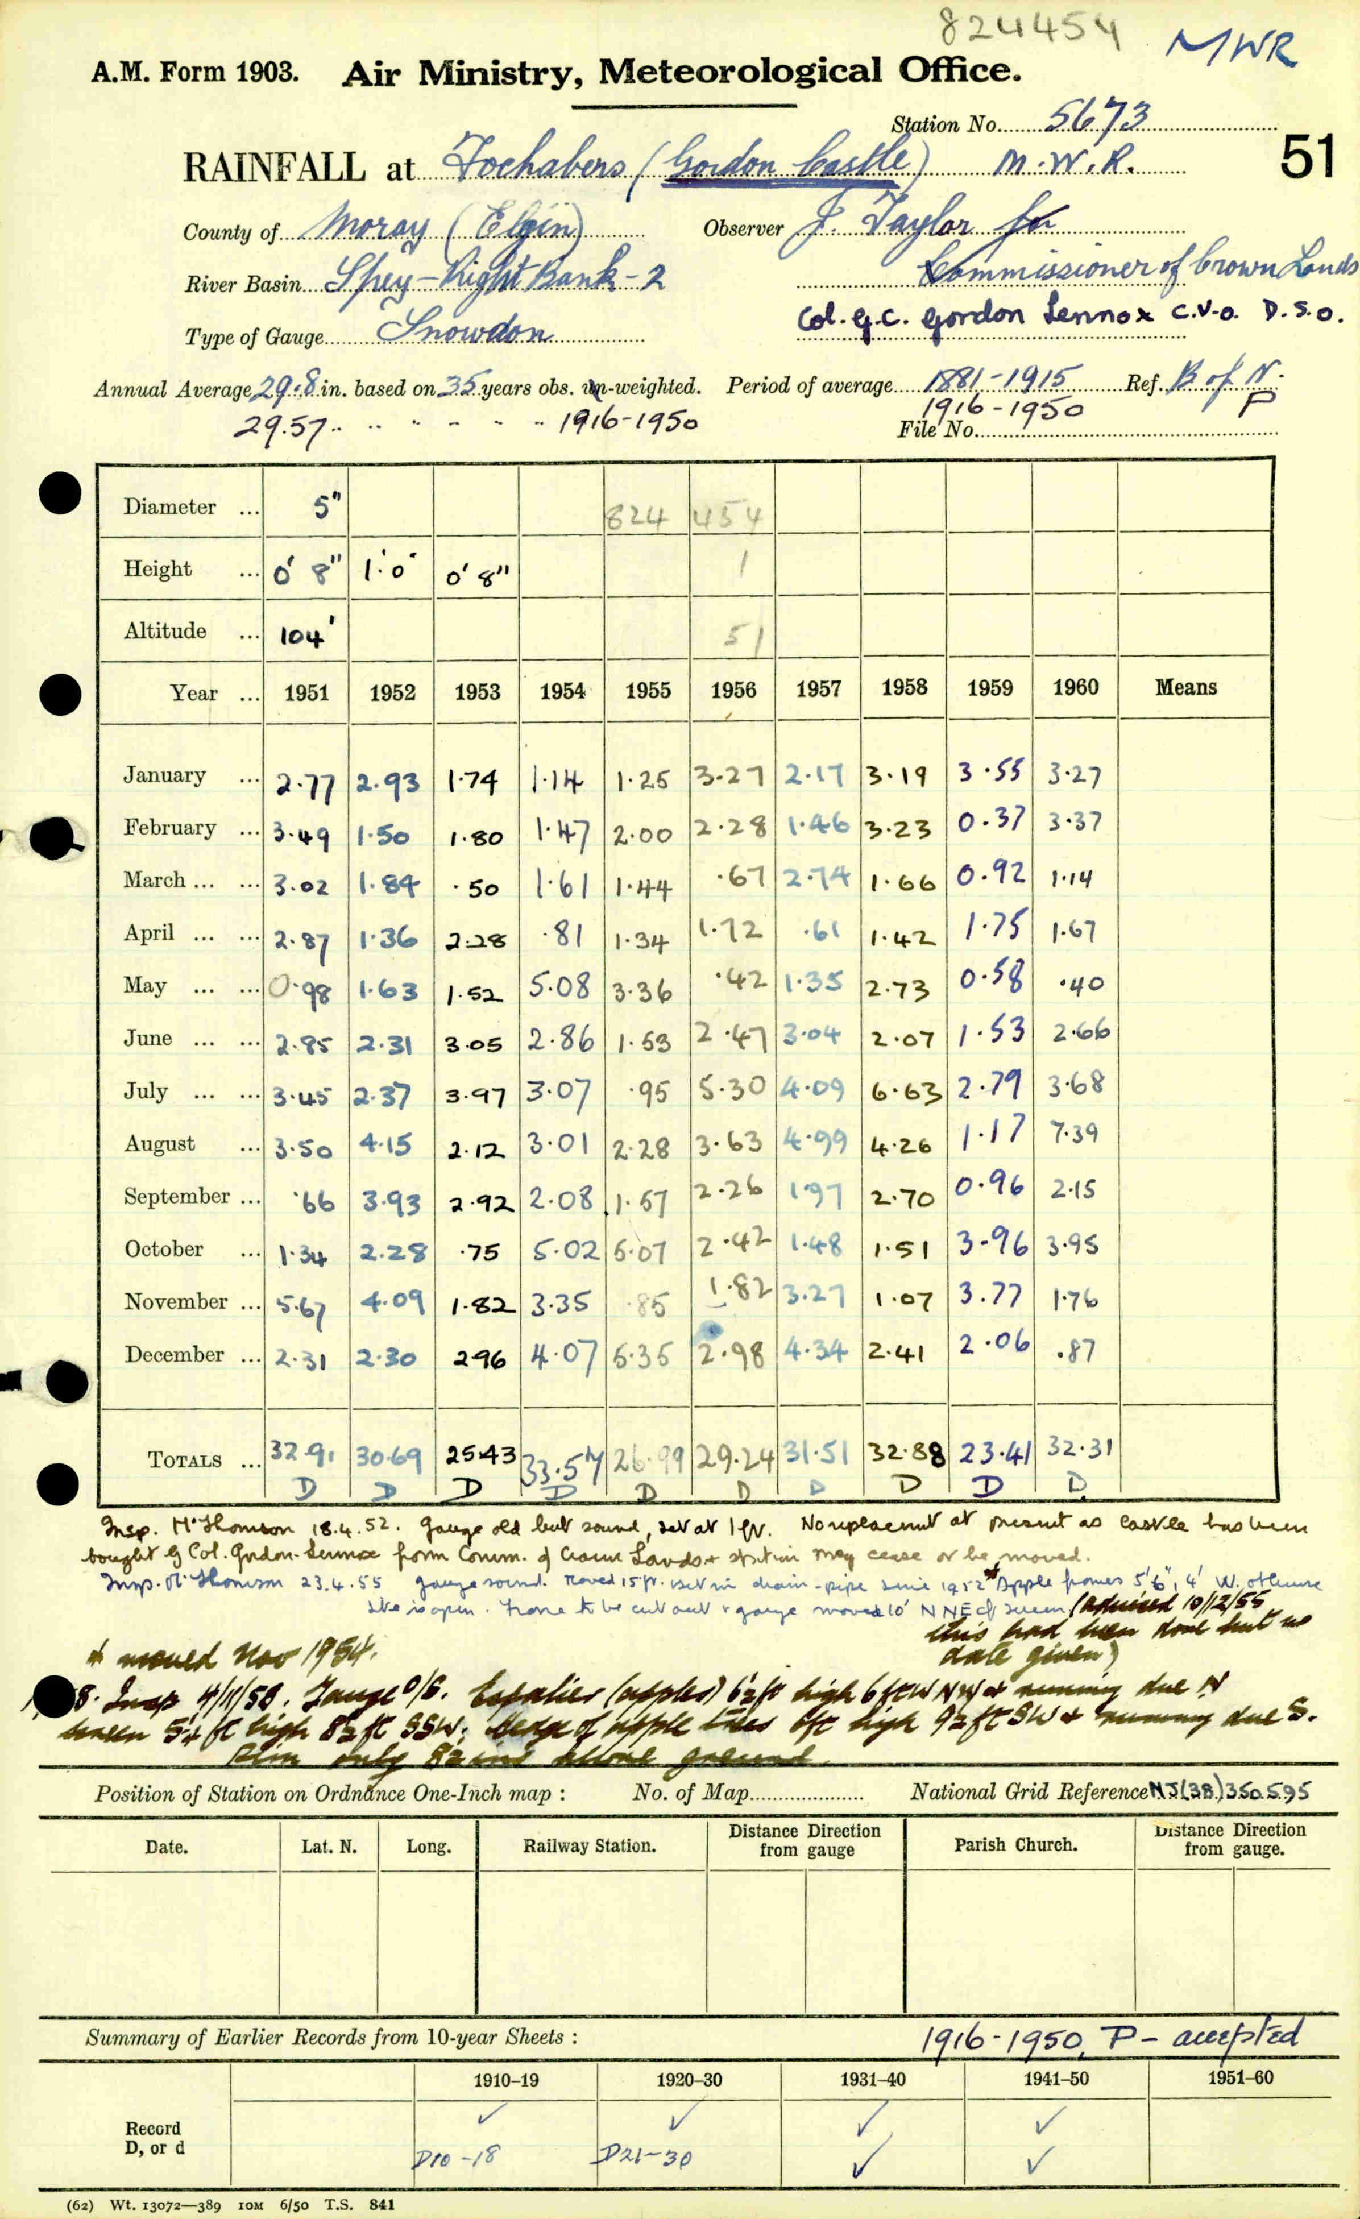 824454 MWR
A.M. Form 1903. Air Ministry, Meteorological Office.
Station No. 5673
RAINFALL at Fochabers (Gordon Castle) M.W.R. 51
County of Moray (Elgin) Observer J. Taylor for
Commissioner of Crown Lands
River Basin Spey-Right Bank-2
Col. G.C. Gordon Lennox C.V.O. D.S.O.
Type of Gauge Snowdon
Annual Average 29.8 in. based on 35 years obs. un-weighted. Period of average 1881-1915 Ref. B of N.
29.57 " " " " " " 1916-1950 1916-1950 P
File No.
Diameter ... 5" 824 454
Height ... 0' 8" 1'·0" 0' 8" 1
Altitude ... 104' 51
Year ... 1951 1952 1953 1954 1955 1956 1957 1958 1959 1960 Means
January ... 2.77 2.93 1.74 1.14 1.25 3.27 2.17 3.19 3.55 3.27
February ... 3.49 1.50 1.80 1.47 2.00 2.28 1.46 3.23 0.37 3.37
March ... ... 3.02 1.84 .50 1.61 1.44 .67 2.74 1.66 0.92 1.14
April ... ... 2.87 1.36 2.28 .81 1.34 1.72 .61 1.42 1.75 1.67
May ... ... 0.98 1.63 1.52 5.08 3.36 .42 1.35 2.73 0.58 .40
June ... ... 2.85 2.31 3.05 2.86 1.53 2.47 3.04 2.07 1.53 2.66
July ... ... 3.45 2.37 3.97 3.07 .95 5.30 4.09 6.63 2.79 3.68
August ... 3.50 4.15 2.12 3.01 2.28 3.63 4.99 4.26 1.17 7.39
September ... .66 3.93 2.92 2.08 1.57 2.26 1.97 2.70 0.96 2.15
October ... 1.34 2.28 .75 5.02 5.07 2.42 1.48 1.51 3.96 3.95
November ... 5.67 4.09 1.82 3.35 .85 1.82 3.27 1.07 3.77 1.76
December ... 2.31 2.30 2.96 4.07 5.35 2.98 4.34 2.41 2.06 .87
TOTALS ... 32.91 30.69 25.43 33.57 26.99 29.24 31.51 32.88 23.41 32.31
D D D D D D D D D D
Insp. Mr Thomson 18.4.52. Gauge old but sound, set at 1 ft. No replacement at present as Castle has been
bought by Col. Gordon-Lennox from Comm. of Crown Lands & station may cease or be moved.
Insp. Mr Thomson 23.4.55 gauge sound. Moved 15 ft. set in drain-pipe since 1952* Apple frames 5'6", 4' W. otherwise
site is open. Frame to be cut out & gauge moved 10' NNE of screen (advised 10/12/55
this had been done but no
date given)
* moved Nov 1954.
Insp 4/11/58. Gauge O/S. Espalier (apples) 6½ ft high 6 ft W NW & running due N
screen 5¼ ft high 8½ ft SSW. Hedge of apple trees 6ft high 9½ ft SW & running due S.
Rim only 8½ ins above ground.
Position of Station on Ordnance One-Inch map : No. of Map National Grid Reference NJ(38)350595
Date. Lat. N. Long. Railway Station. Distance Direction from gauge Parish Church. Distance Direction from gauge.
Summary of Earlier Records from 10-year Sheets : 1916-1950, P - accepted
1910–19 1920–30 1931–40 1941–50 1951–60
Record ✓ ✓ ✓ ✓
D, or d D10-18 D21-30 ✓ ✓
(62) Wt. 13072—389 10M 6/50 T.S. 841